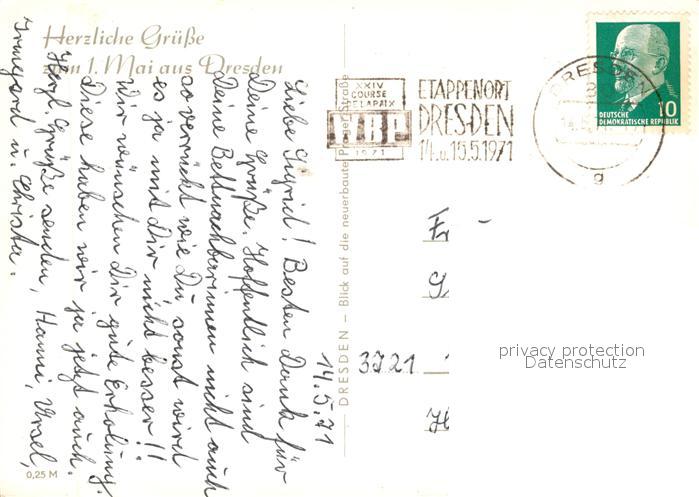 Herzliche Grüße
zum 1. Mai aus Dresden
14.5.71
Liebe Ingrid! Besten Dank für
Deine Grüße. Hoffentlich sind
Deine Bettnachbarinnen nicht auch
so verrückt wie Du sonst wird
es ja mit Dir nicht besser!!
Wir wünschen Dir gute Erholung.
Diese haben wir ja jetzt auch.
Herzl. Grüße senden, Hanni, Ursel,
Irmgard u. Christa.
0,25 M
DRESDEN — Blick auf die neuerbaute Prager Straße
XXIV
COURSE
DE LA PAIX
1971
ETAPPENORT
DRESDEN
14. u. 15.5.1971
DRESDEN
g
10
DEUTSCHE
DEMOKRATISCHE REPUBLIK
3721
privacy protection
Datenschutz